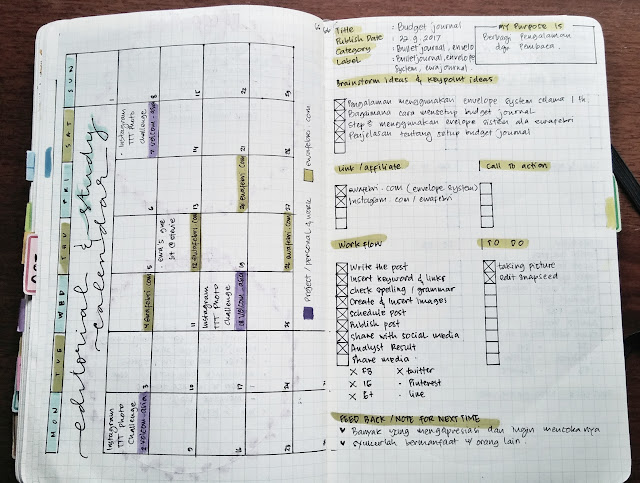 editorial & study
calendar
MON
TUE
WED
THU
FRI
SAT
SUN
Instagram
TTT Photo
Challenge
2 volcom-asia
3
4 ewafebri.com
5
ewa's give
6
Instagram
TTT Photo
challenge
7 volcom-asia
8
9
10
11
12 ewafebri.com
13
14
15
16
17
Instagram
TTT Photo
Challenge
18 volcom-asia
19
20 ewafebri.com
21
22
23
24
25
26 ewafebri.com
27
28
29
Project / personal & work
ewafebri.com
Title : Budget journal
Publish Date : 22.9.2017
Category : Bullet journal, envelo
Label : Bullet journal, envelope
System, ewajournal
MY Purpose is
Berbagi Pengalaman
dgn Pembaca.
Brainstorm ideas & keypoint ideas
Pengalaman menggunakan envelope System selama 1 th
Bagaimana cara mensetup budget journal
Step 2 menggunakan evelope sistem ala ewafebri
Penjelasan tentang setup budget journal
Link / affiliate
ewafebri.com (envelope System)
Instagram.com / ewafebri
Call To action
Workflow
Write the post
Insert keyword & links
Check spelling / grammar
Create & Insert images
Schedule post
Publish post
share with social media
Analyst Result
share media
X FB
X twitter
X IG
- Pinterest
X G+
- Line
TO DO
taking picture
edit snapseed
FEED BACK / NOTE FOR NEXT TIME
v Banyak yang mengapresiasi dan ingin mencobanya
v syukurlah bermanfaat u/ orang lain.